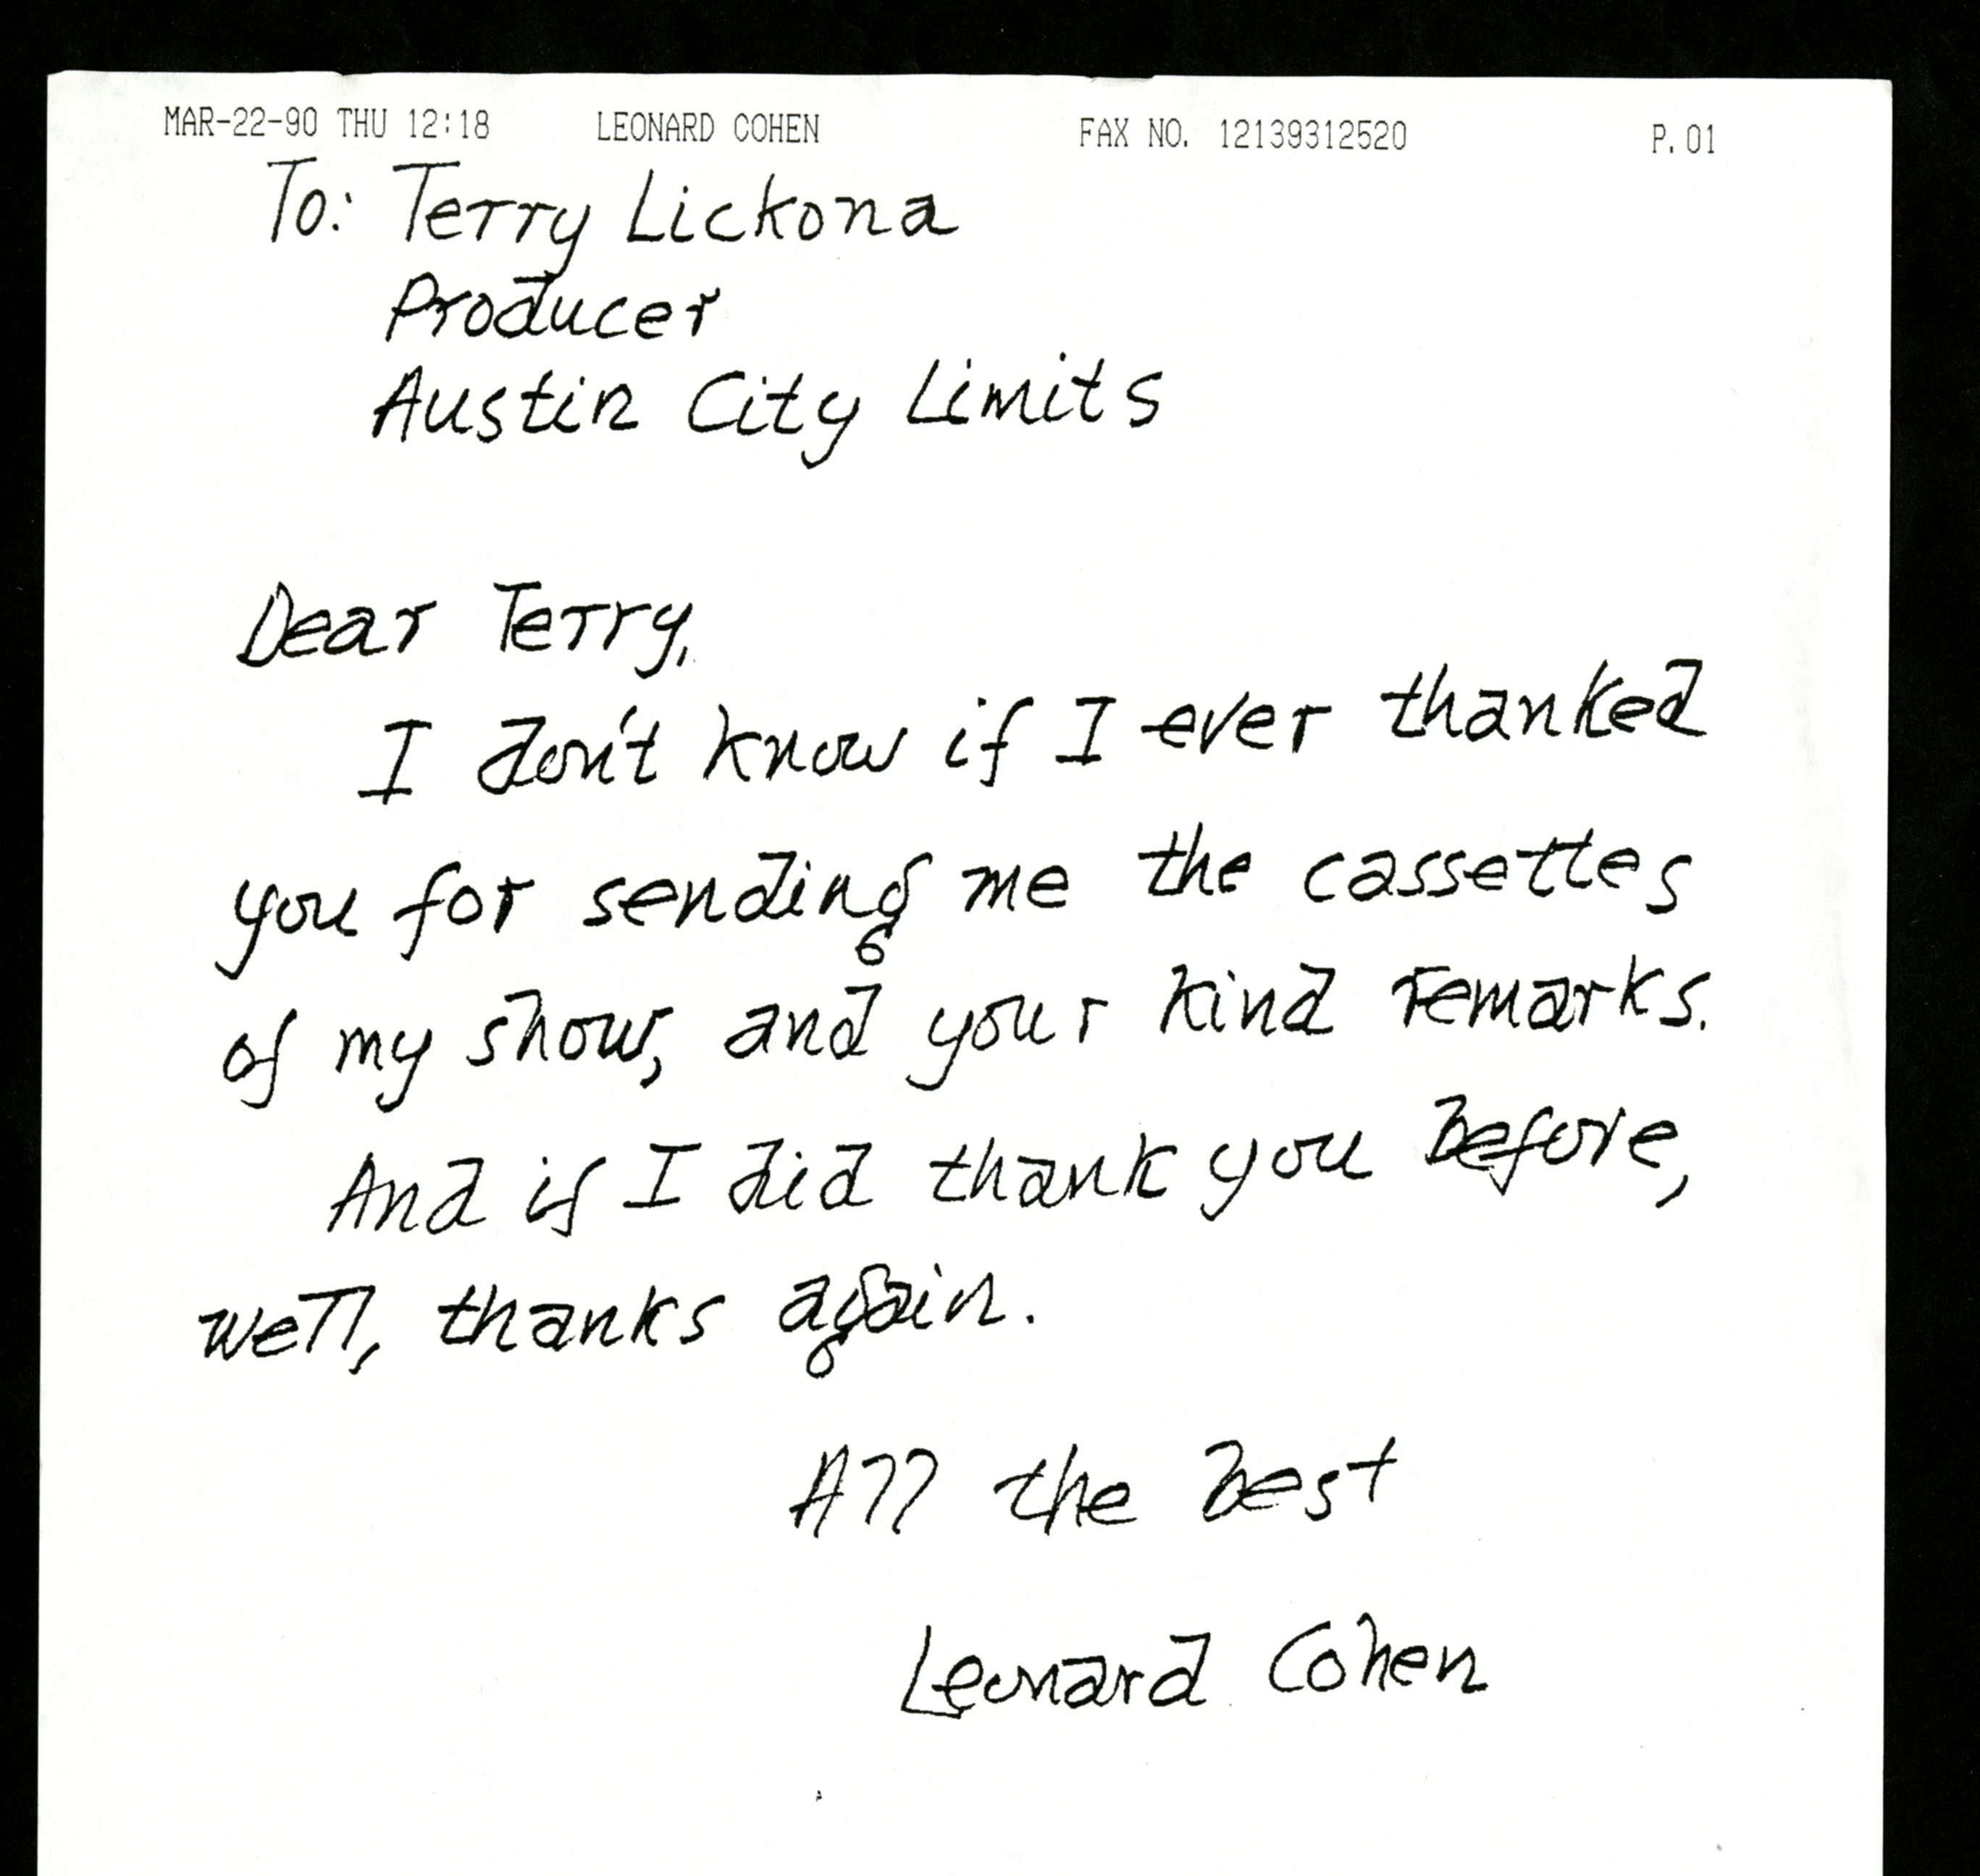 MAR-22-90 THU 12:18 LEONARD COHEN FAX NO. 12139312520 P.01
To: Terry Lickona
Producer
Austin City Limits
Dear Terry,
I don't know if I ever thanked
you for sending me the cassettes
of my show, and your kind remarks.
And if I did thank you before,
well, thanks again.
All the best
Leonard Cohen